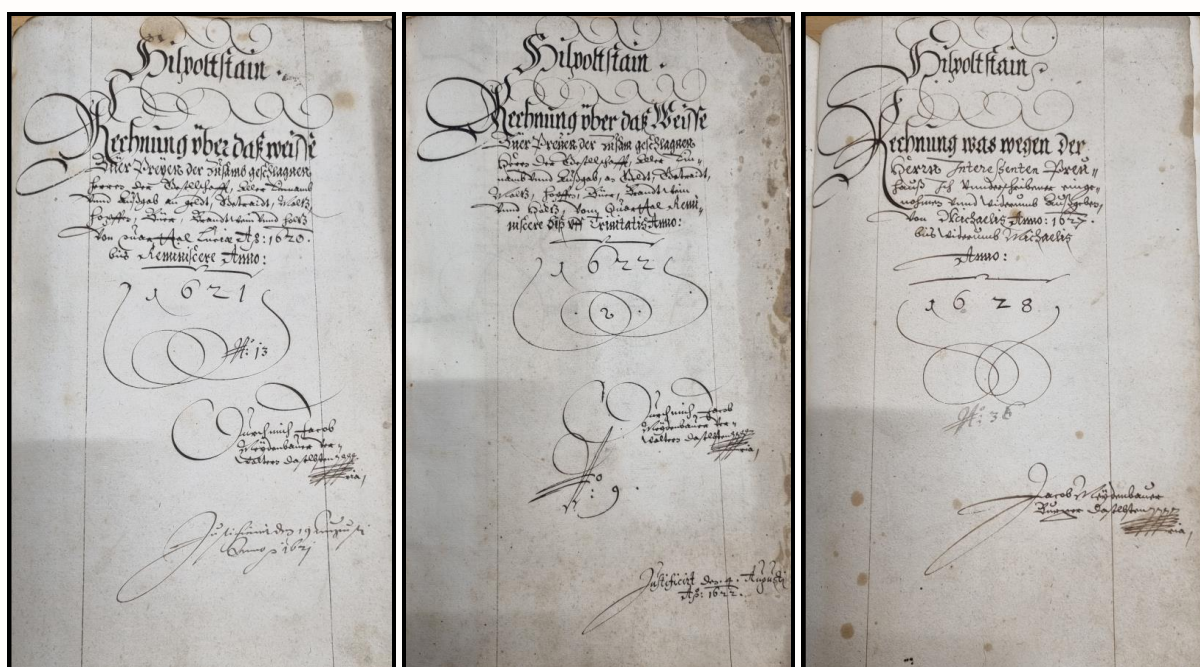 Hilpoltstain.
Rechnung über daß weisse
Bier Breuen der Zusamo geschlagnen
Herrn der Gesellschafft, Aller Einnamb
und Außgab an gelt, Getraidt, Maltz,
Hopffen, Bier, Brandtwein und holtz
Von Quarthal Luciæ Aō: 1620.
bis Reminiscere Anno:
1621
Nº: 13
Durch mich Jacob
Meÿdenbauer Ver-
walter daselbsten
Justificirt den 19 Augusti
Anno 1621
Hilpoltstain.
Rechnung über daß Weisse
Bier Breuen der Zusam geschlagnen
Herrn der Gesellschafft, Aller Ein-
namb und Außgab, an Geldt, Getraidt,
Maltz, Hopffen, Bier, Brandtwein
und Holtz, vom Quarthal Remi-
niscere biß uff Trinitatis Anno:
1622
2
Durch mich Jacob
Meÿdenbauer Ver-
walter daselbsten
No: 9.
Justificirt den 4. Augusti
Aō: 1622.
Hilpoltstain
Rechnung was wegen der
Herrn Interessenten Breu-
hauß Ich underschribener einge-
nohmen und widerumb Außgeben,
von Michaelis Anno: 1627
biß widerumb Michaelis
Anno:
1628
Nº: 38
Jacob Meÿdenbauer
Burger daselbsten